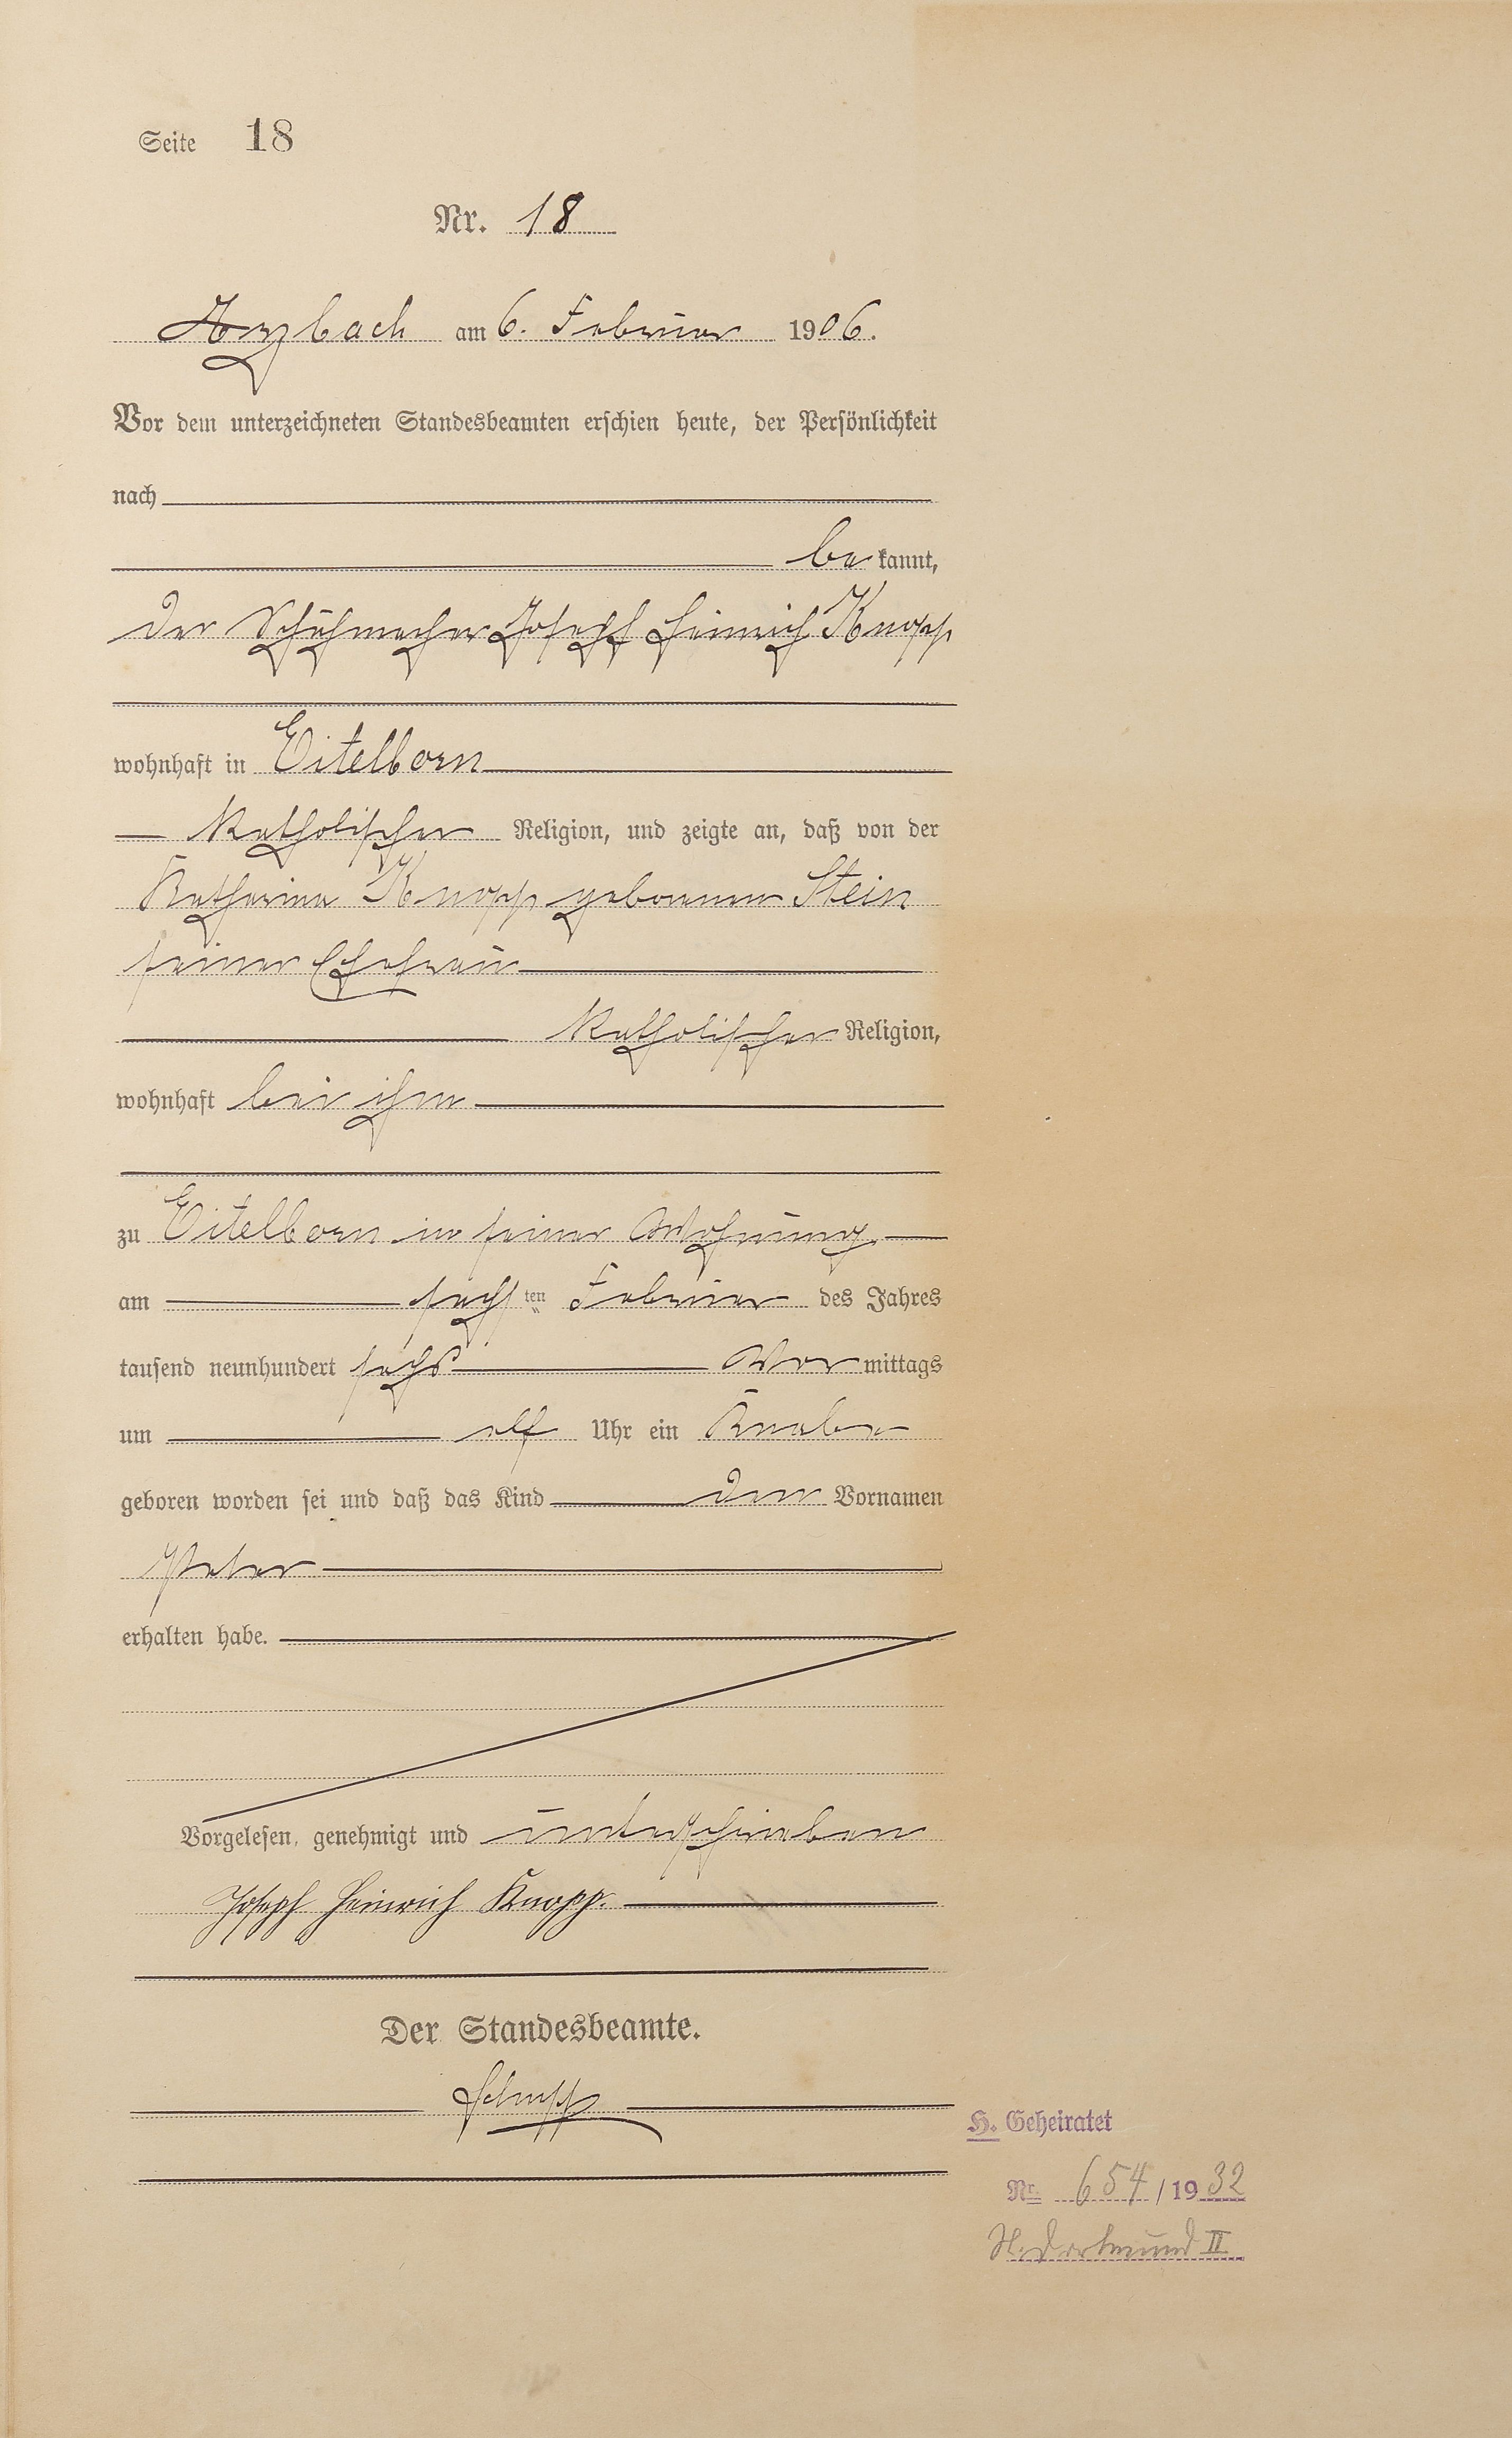 Seite 18
Nr. 18
Arzbach am 6. Februar 1906.
Vor dem unterzeichneten Standesbeamten erschien heute, der Persönlichkeit
nach
be kannt,
der Schuhmacher Joseph Heinrich Knopp
wohnhaft in Eitelborn
katholischer Religion, und zeigte an, daß von der
Katharina Knopp geborenen Stein
seiner Ehefrau
katholischer Religion,
wohnhaft bei ihm
zu Eitelborn in seiner Wohnung
am sechsten Februar des Jahres
tausend neunhundert sechs Vormittags
um elf Uhr ein Knabe
geboren worden sei und daß das Kind den Vornamen
Peter
erhalten habe.
Vorgelesen, genehmigt und unterschrieben
Joseph Heinrich Knopp.
Der Standesbeamte.
H. Geheiratet
Nr. 654/1932
Dortmund II